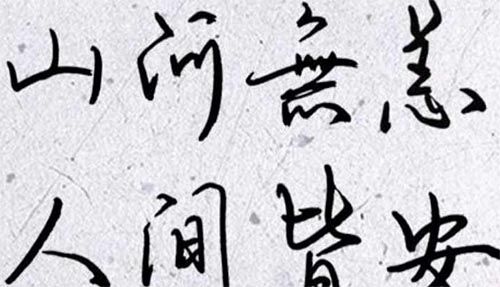 山河無恙
人间皆安